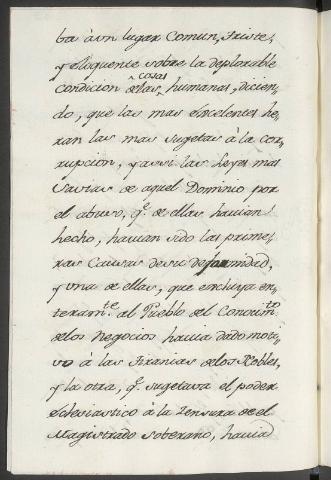 ba à un lugar Comun, triste,
y eloquente sobre la deplorable
condicion de las cosas humanas, dicien
do, que las mas Excelentes he,,
ran las mas sugetas à la cor,,
rupcion, y assi las Leyes mas
savias de aquel Dominio por
el abuso, q.e de ellas havian
hecho, havian sido las prime,,
ras Causas de su deformidad,
y una de ellas, que excluya en,,
teram.te al Pueblo del Conocim.to
de los Negocios havia dado moti,,
vo à las tiranias de los Nobles,
y la otra, q.e sugetava el poder
Eclesiastico à la Zensura de el
Magistrado soberano, havia